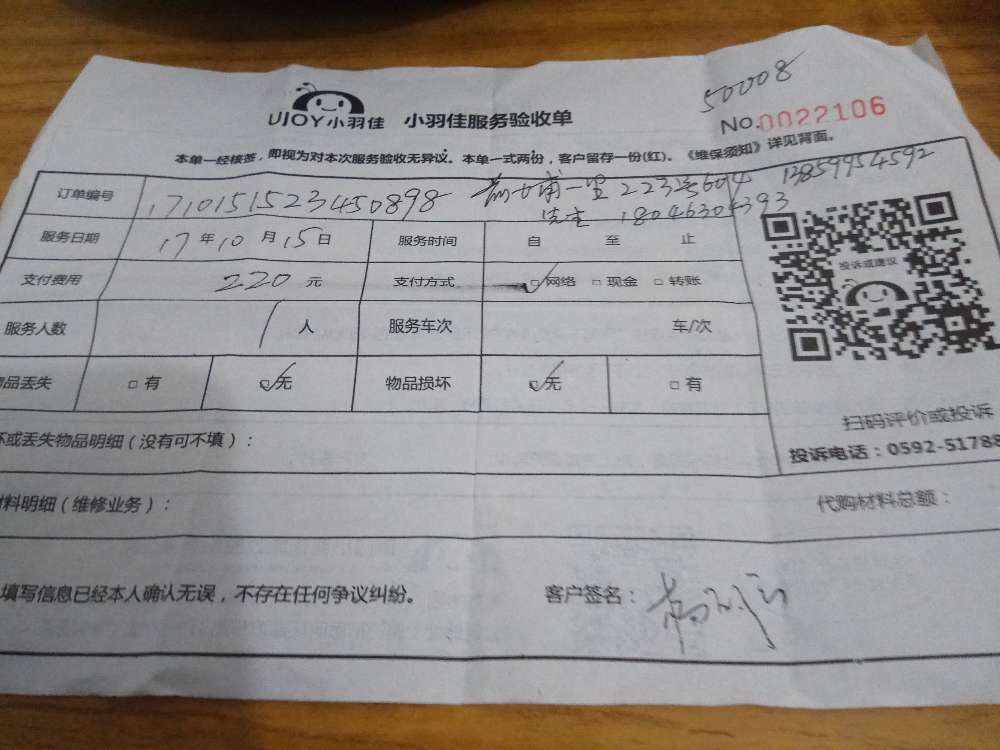 50008
UJOY小羽佳 小羽佳服务验收单
No.0022106
本单一经核签，即视为对本次服务验收无异议。本单一式两份，客户留存一份(红)。《维保须知》详见背面。
订单编号 1710151523450898 一里223号604 13859954592
先生 18046304393
服务日期 17年10月15日 服务时间 自 至 止
支付费用 220元 支付方式 □网络 □现金 □转账
投诉或建议
服务人数 1人 服务车次 车/次
品丢失 □有 □无 物品损坏 □无 □有
扫码评价或投诉
坏或丢失物品明细(没有可不填)：
投诉电话：0592-51788
材料明细(维修业务)： 代购材料总额：
填写信息已经本人确认无误，不存在任何争议纠纷。 客户签名：